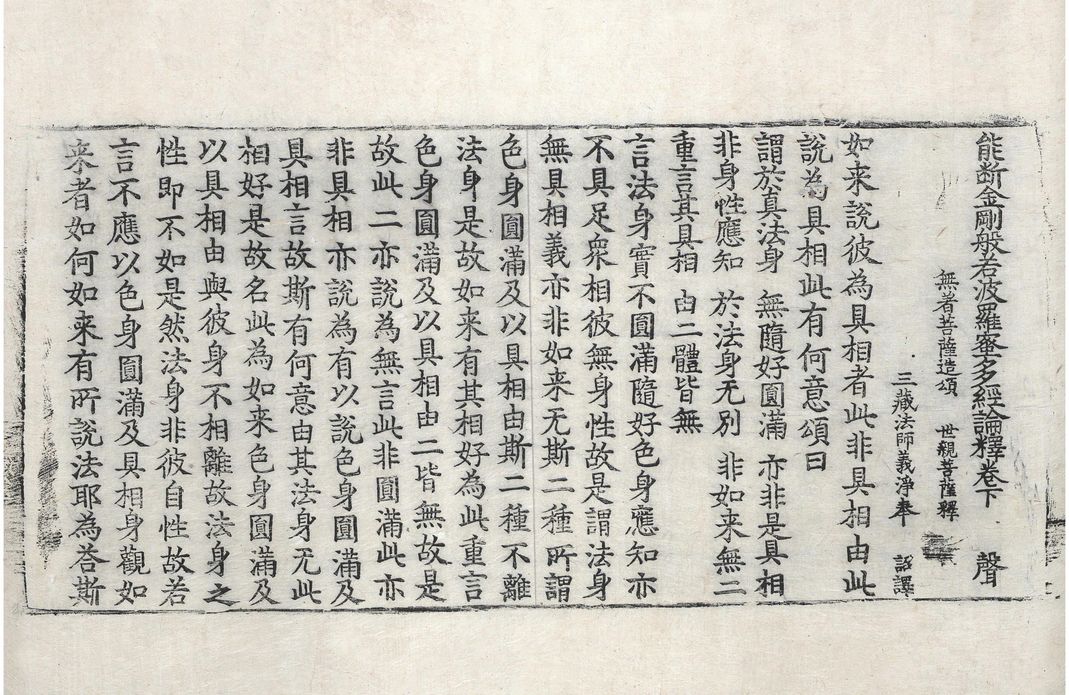 能断金剛般若波羅蜜多經論釋卷下　聲
無著菩薩造頌　世親菩薩釋
三藏法師義淨奉　詔譯
如来說彼為具相者此非具相由此
說為具相此有何意頌曰
謂於真法身　無隨好圓滿　亦非是具相
非身性應知　於法身无別　非如来無二
重言其具相　由二體皆無
言法身實不圓滿隨好色身應知亦
不具足衆相彼無身性故是謂法身
無具相義亦非如来无斯二種所謂
色身圓滿及以具相由斯二種不離
法身是故如来有其相好為此重言
色身圓滿及以具相由二皆無故是
故此二亦說為無言此非圓滿此亦
非具相亦說為有以說色身圓滿及
具相言故斯有何意由其法身无此
相好是故名此為如来色身圓滿及
以具相由與彼身不相離故法身之
性即不如是然法身非彼自性故若
言不應以色身圓滿及具相身觀如
来者如何如来有所說法耶為荅斯